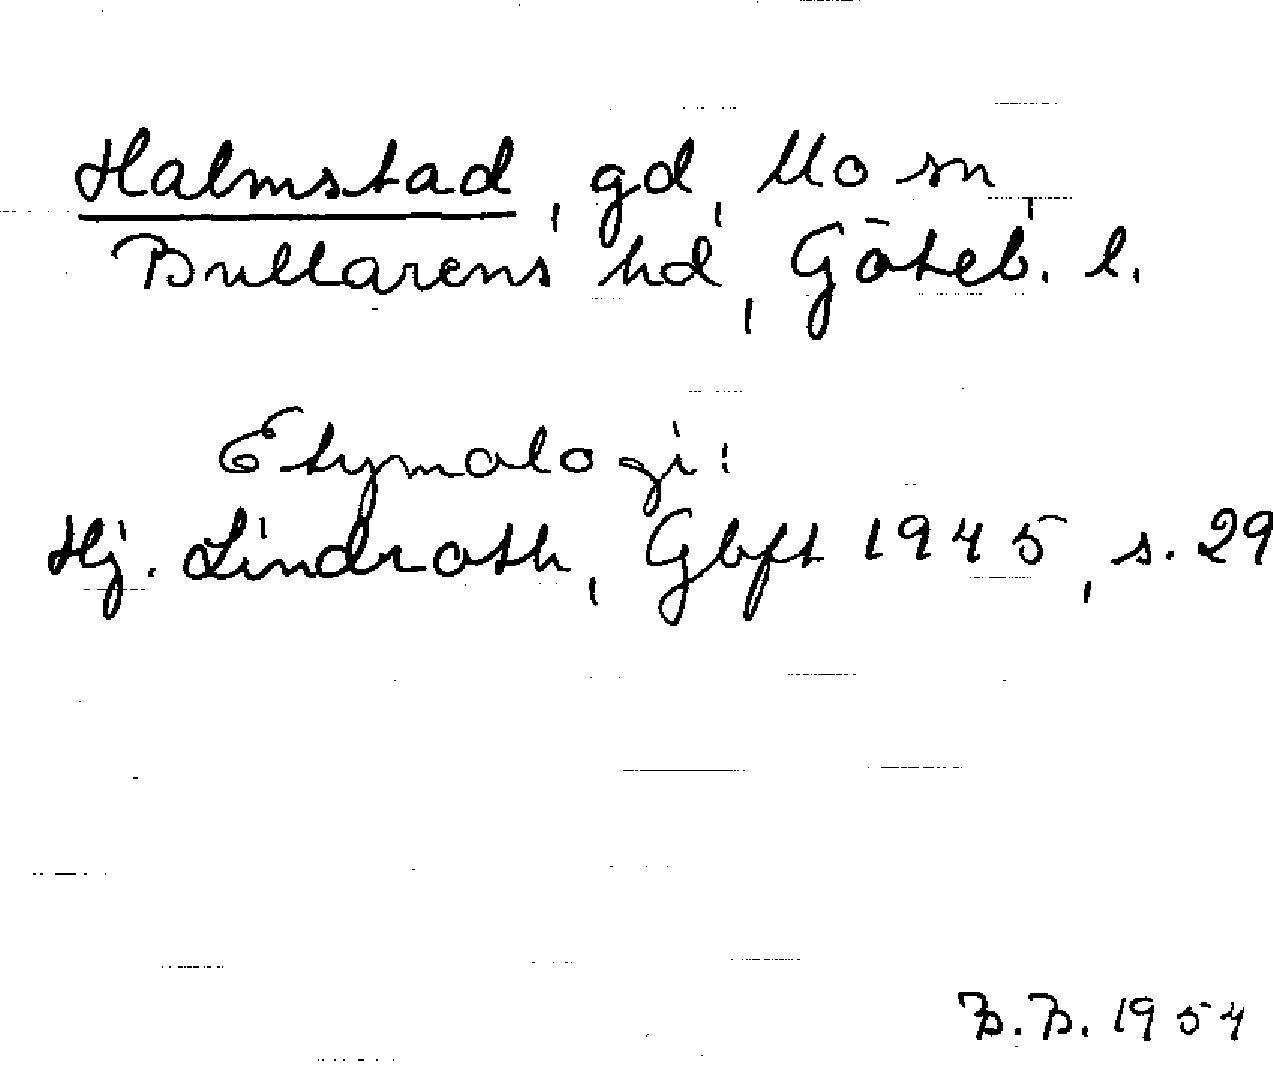 Halmstad, gd, Mo sn,
Bullarens hd, Göteb. l.
Etymologi:
Hj. Lindroth, Gbft 1945, s. 29
B.B. 1954